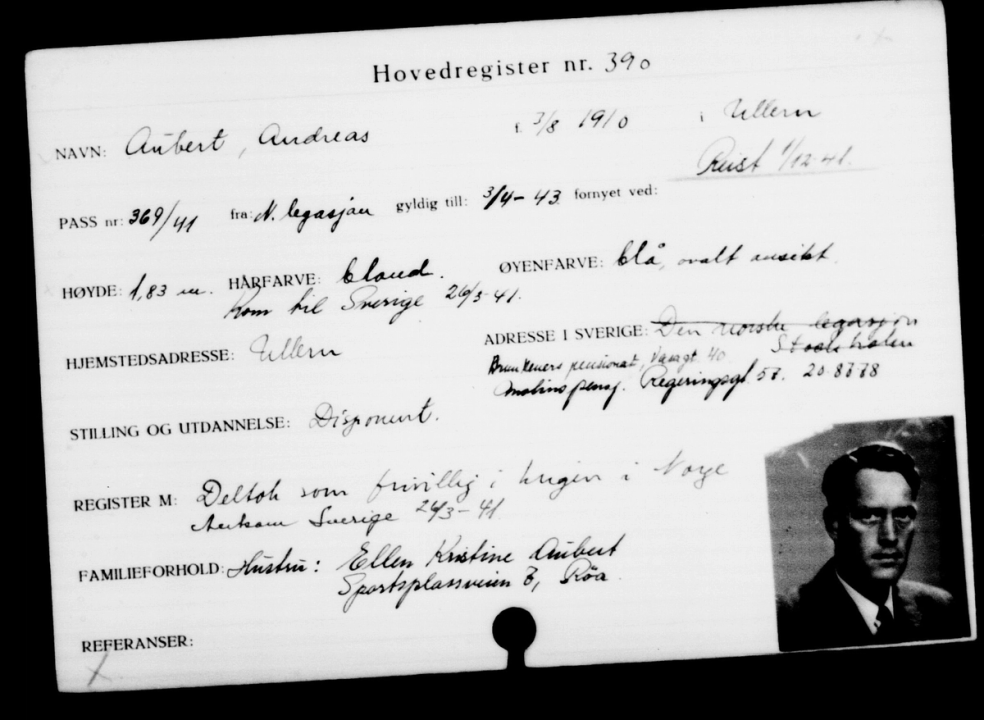 Hovedregister nr. 390
NAVN: Aubert, Andreas f. 3/8 1910 i Ullern
Reist 1/12-41.
PASS nr: 369/41 fra: N. legasjon gyldig till: 3/4-43 fornyet ved:
HØYDE: 1,83 m. HÅRFARVE: blond. ØYENFARVE: blå, ovalt ansikt.
Kom til Sverige 26/3-41.
HJEMSTEDSADRESSE: Ullern ADRESSE I SVERIGE: Den norske legasjon
Stockholm
pensionat, Vasagt 40
Molins pensj. Regeringsgt. 57. 20 8778
STILLING OG UTDANNELSE: Disponent.
REGISTER M: Deltok som frivillig i krigen i Norge
Ankom Sverige 24/3-41
FAMILIEFORHOLD: Hustru: Ellen Kristine Aubert
Sportsplassveien 8, Røa.
REFERANSER:
X